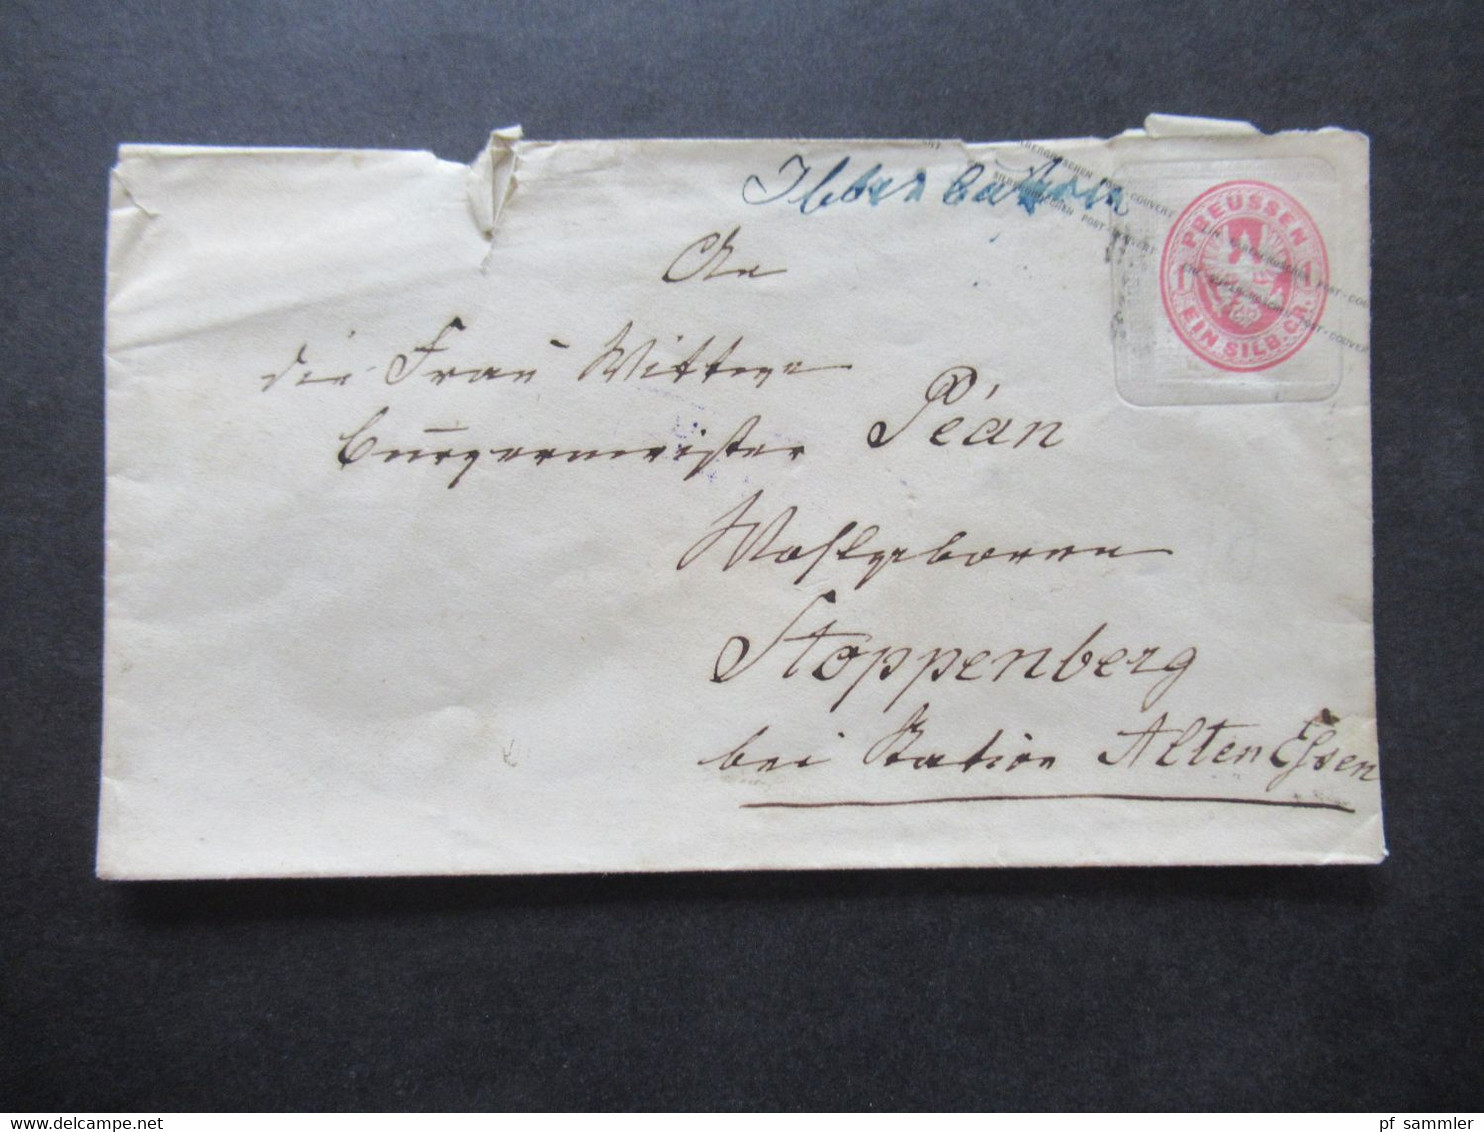 Ibbenbüren
An
die Frau Wittwe
Burgermeister Péan
Wohlgeboren
Stoppenberg
bei Station Alten Essen
PREUSSEN
1 1
EIN SILB. GR.
EIN SILBERGROSCHEN POST-COUVERT
pf sammler
Delcampe.net